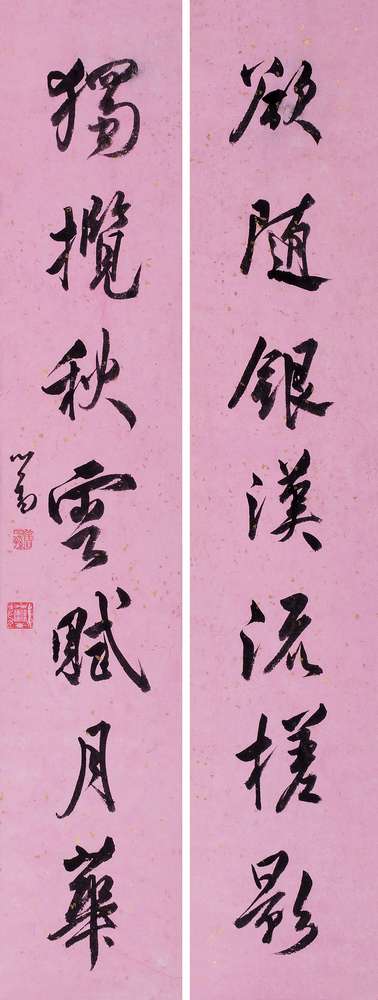 欲隨銀漢流槎影
獨攬秋雲賦月華
心畬